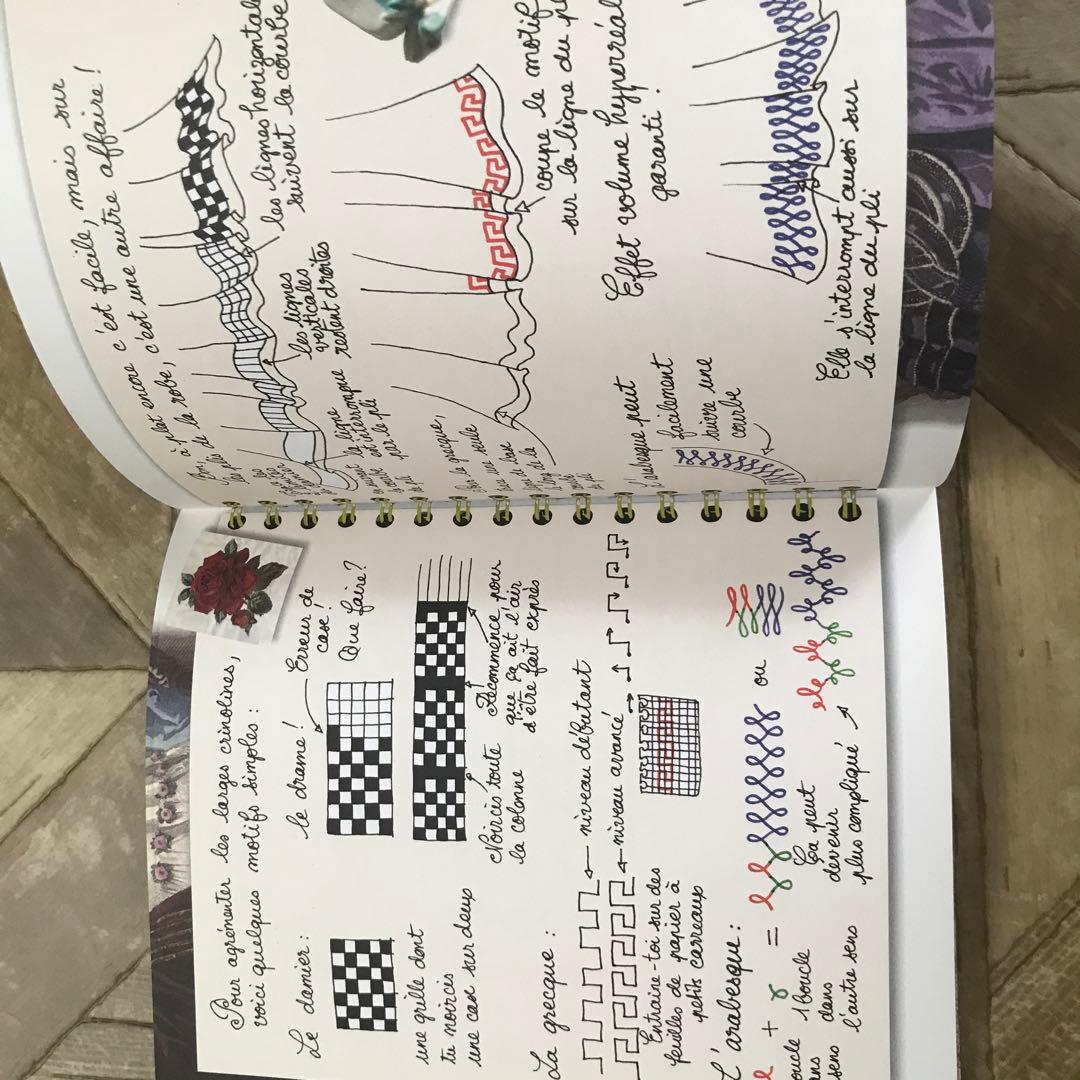 Pour agrémenter les larges crinolines,
voici quelques motifs simples :
Le damier :
une grille dont
tu noircis
une case sur deux
le drame !
Erreur de
case !
Que faire ?
Noircis toute
la colonne
Recommence, pour
que ça ait l'air
d'être fait exprès
La grecque :
niveau débutant
niveau avancé
Entraine-toi sur des
feuilles de papier à
petits carreaux
L'arabesque :
+ =
ou
boucle 1 boucle
dans
sens l'autre sens
Ça peut
devenir
plus compliqué
Bon, à plat encore c'est facile, mais sur
les plis de la robe, c'est une autre affaire !
les lignes horizontales
suivent la courbe
les lignes
verticales
restent droites
la ligne
est interrompue
par le pli
la grecque,
une seule
coupe le motif
sur la ligne du pli
Effet volume hyperréaliste
garanti !
l'arabesque peut
facilement
suivre une
courbe
Elle s'interrompt aussi sur
la ligne du pli